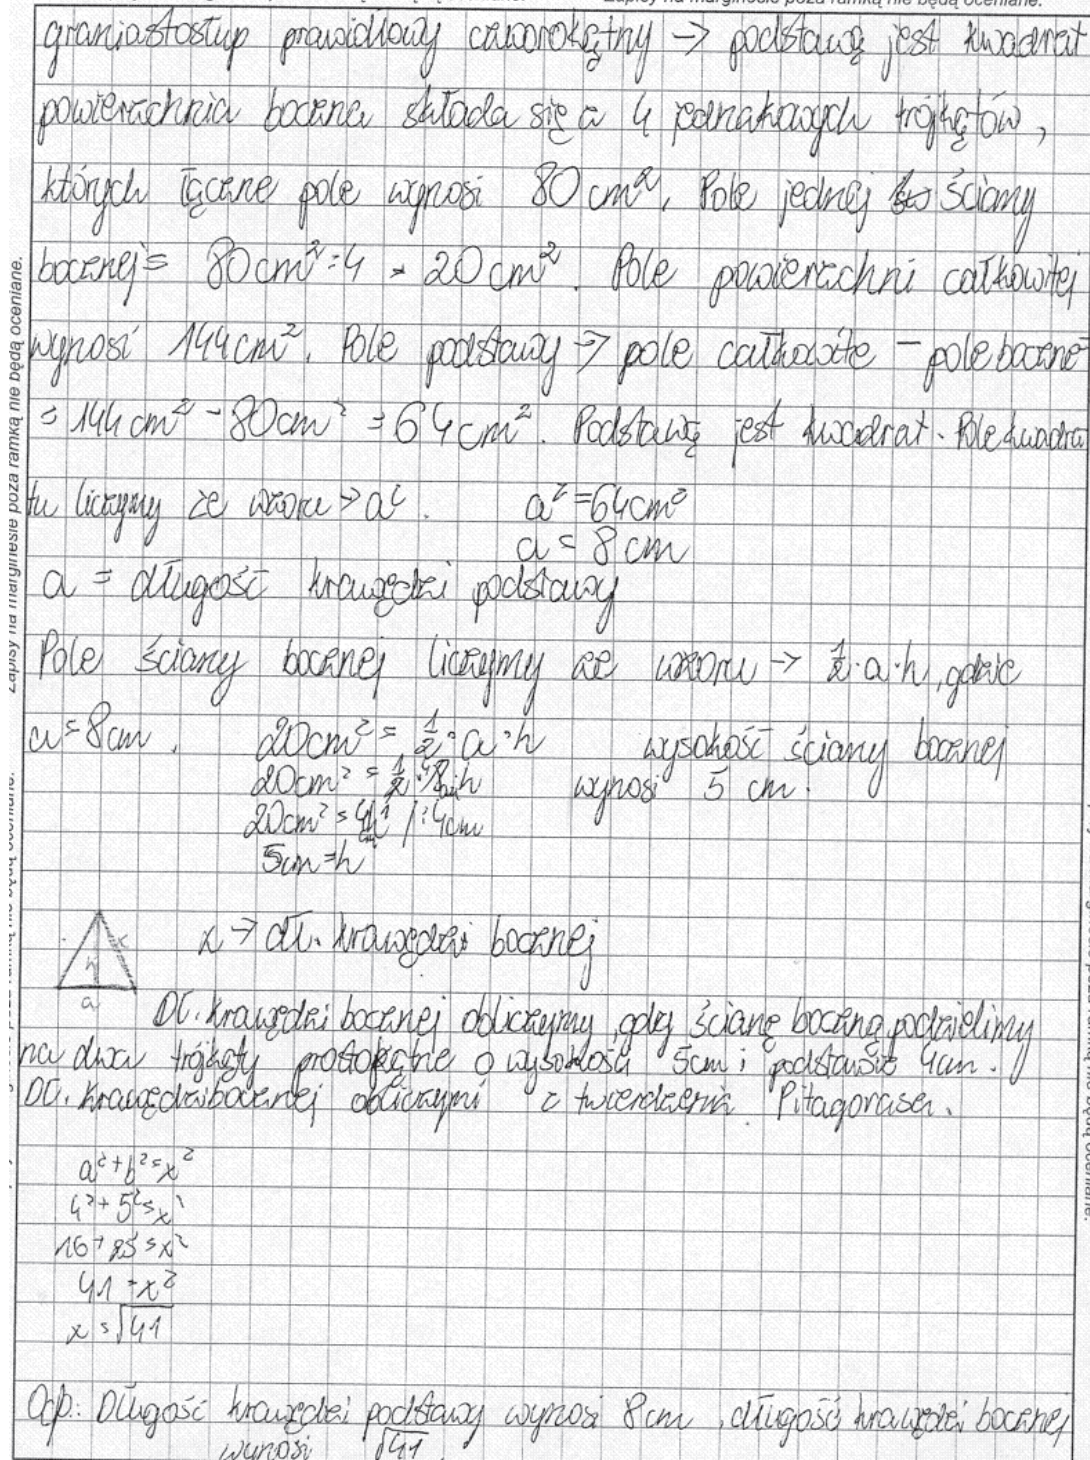 Zapisy na marginesie poza ramką nie będą oceniane.
graniastosłup prawidłowy czworokątny → podstawą jest kwadrat
powierzchnia boczna składa się z 4 jednakowych trójkątów,
których łączne pole wynosi 80 cm². Pole jednej ściany
bocznej = 80 cm² : 4 = 20 cm². Pole powierzchni całkowitej
wynosi 144 cm². Pole podstawy → pole całkowite - pole boczne =
= 144 cm² - 80 cm² = 64 cm². Podstawą jest kwadrat. Pole kwadra
tu liczymy ze wzoru → a². a² = 64 cm²
a = 8 cm
a = długość krawędzi podstawy
Pole ściany bocznej liczymy ze wzoru → ½ · a · h, gdzie
a = 8 cm. 20 cm² = ½ · a · h wysokość ściany bocznej
20 cm² = ½ · 8 · h wynosi 5 cm.
20 cm² = 4h /: 4 cm
5 cm = h
x → dł. krawędzi bocznej
x
h
a
Dł. krawędzi bocznej obliczymy, gdy ścianę boczną podzielimy
na dwa trójkąty prostokątne o wysokości 5 cm i podstawie 4 cm.
Dł. krawędzi bocznej obliczymy z twierdzenia Pitagorasa.
a² + b² = x²
4² + 5² = x²
16 + 25 = x²
41 = x²
x = √41
Odp.: Długość krawędzi podstawy wynosi 8 cm, długość krawędzi bocznej
wynosi √41
Zapisy na marginesie poza ramką nie będą oceniane.